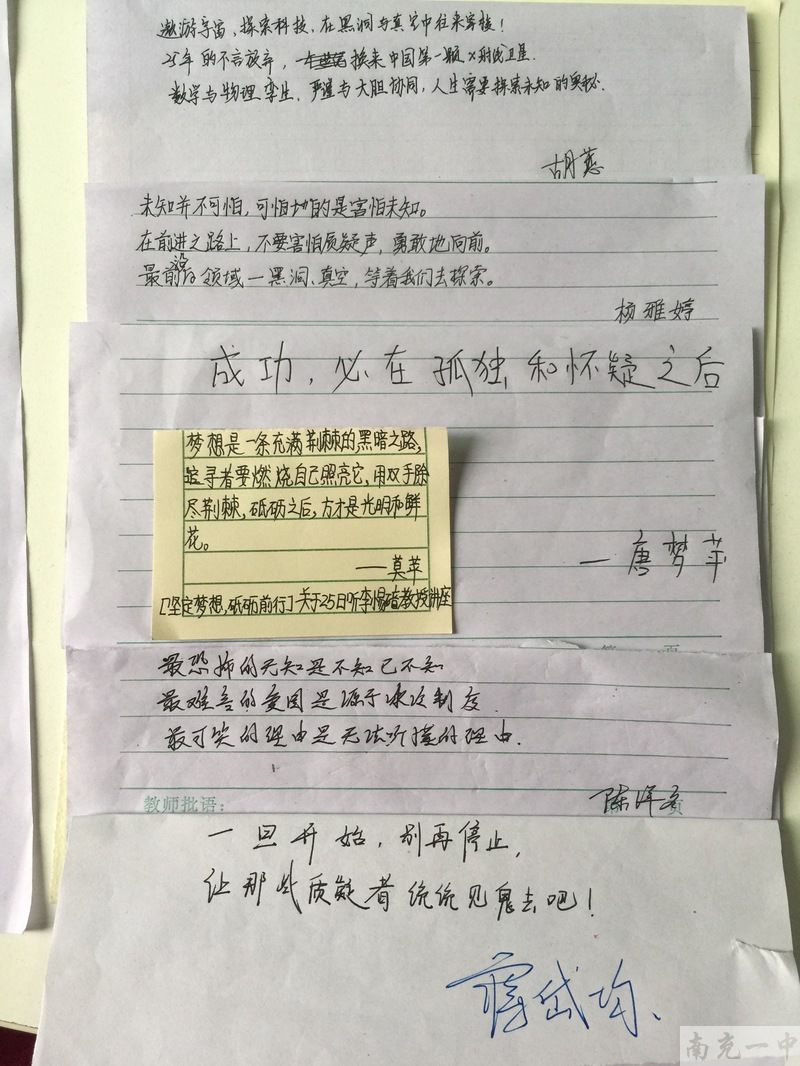 遨游宇宙，探索科技，在黑洞与真空中往来穿梭！
25年的不言放弃，换来中国第一颗X射线卫星.
数学与物理孪生，严谨与大胆协同，人生需要探索未知的奥秘.
胡慧
未知并不可怕，可怕的是害怕未知。
在前进之路上，不要害怕质疑声，勇敢地向前。
最前沿领域—黑洞、真空，等着我们去探索。
杨雅婷
成功，必在孤独和怀疑之后
—唐梦苹
梦想是一条充满荆棘的黑暗之路，
追寻者要燃烧自己照亮它，用双手除
尽荆棘，砥砺之后，方才是光明和鲜
花。
——莫苹
[坚定梦想，砥砺前行]关于25日听李惕碚教授讲座
最恐怖的无知是不知已不知
最难言的是源于冰冷制度
最可笑的理由是无法听懂的理由.
陈
教师批语：
页
一旦开始，别再停止，
让那些质疑者统统见鬼去吧！
岱均
南充一中